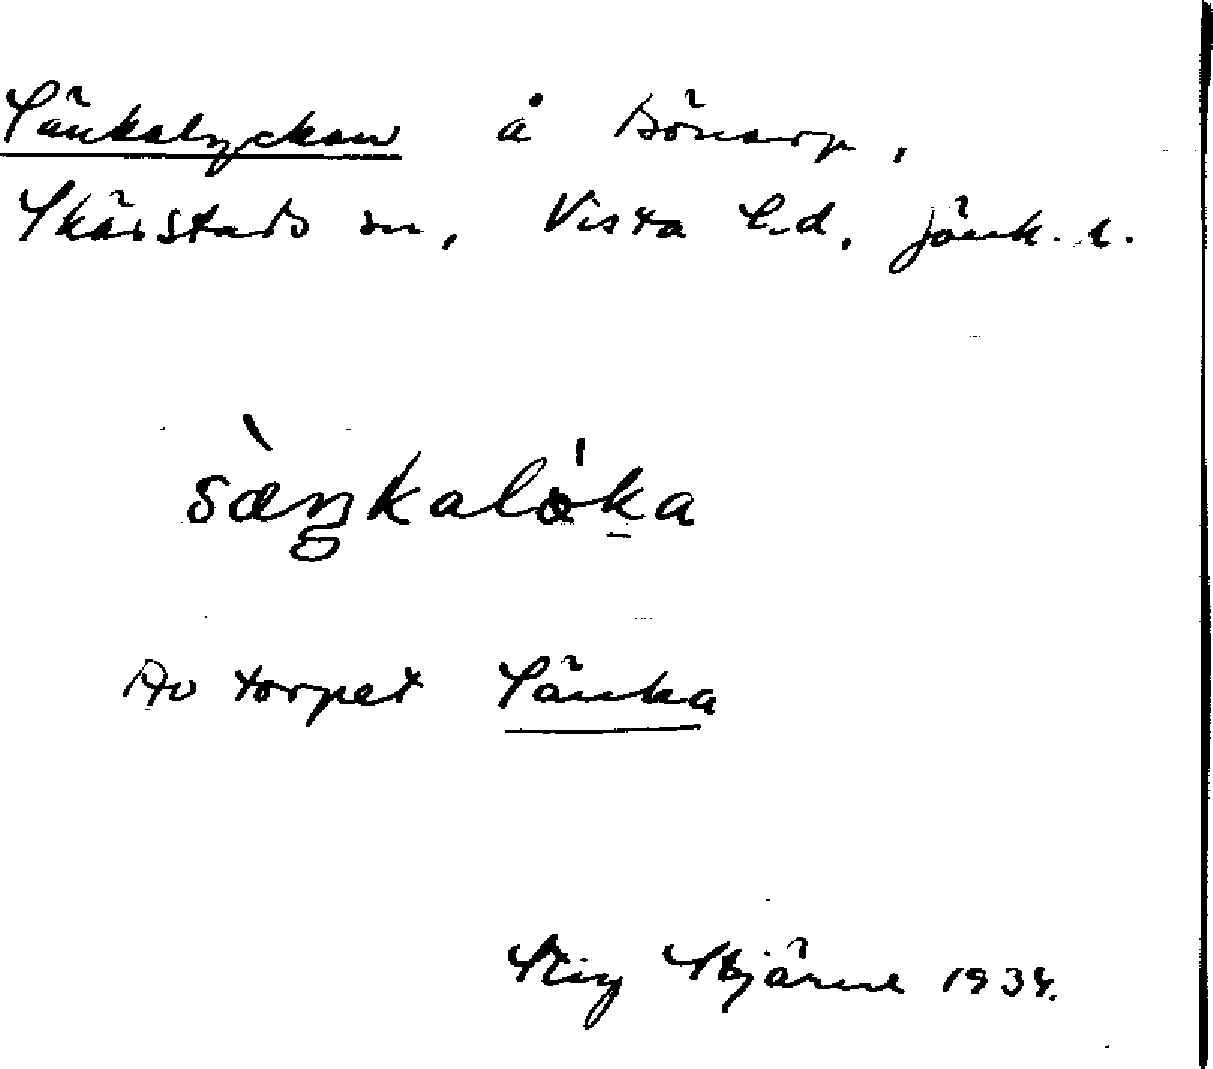 Sänkalyckan å Bönarp,
Skärstads sn, Vista hd, Jönk. l.
sæŋkalöka
Av torpet Sänka
Stig Stjärne 1934.